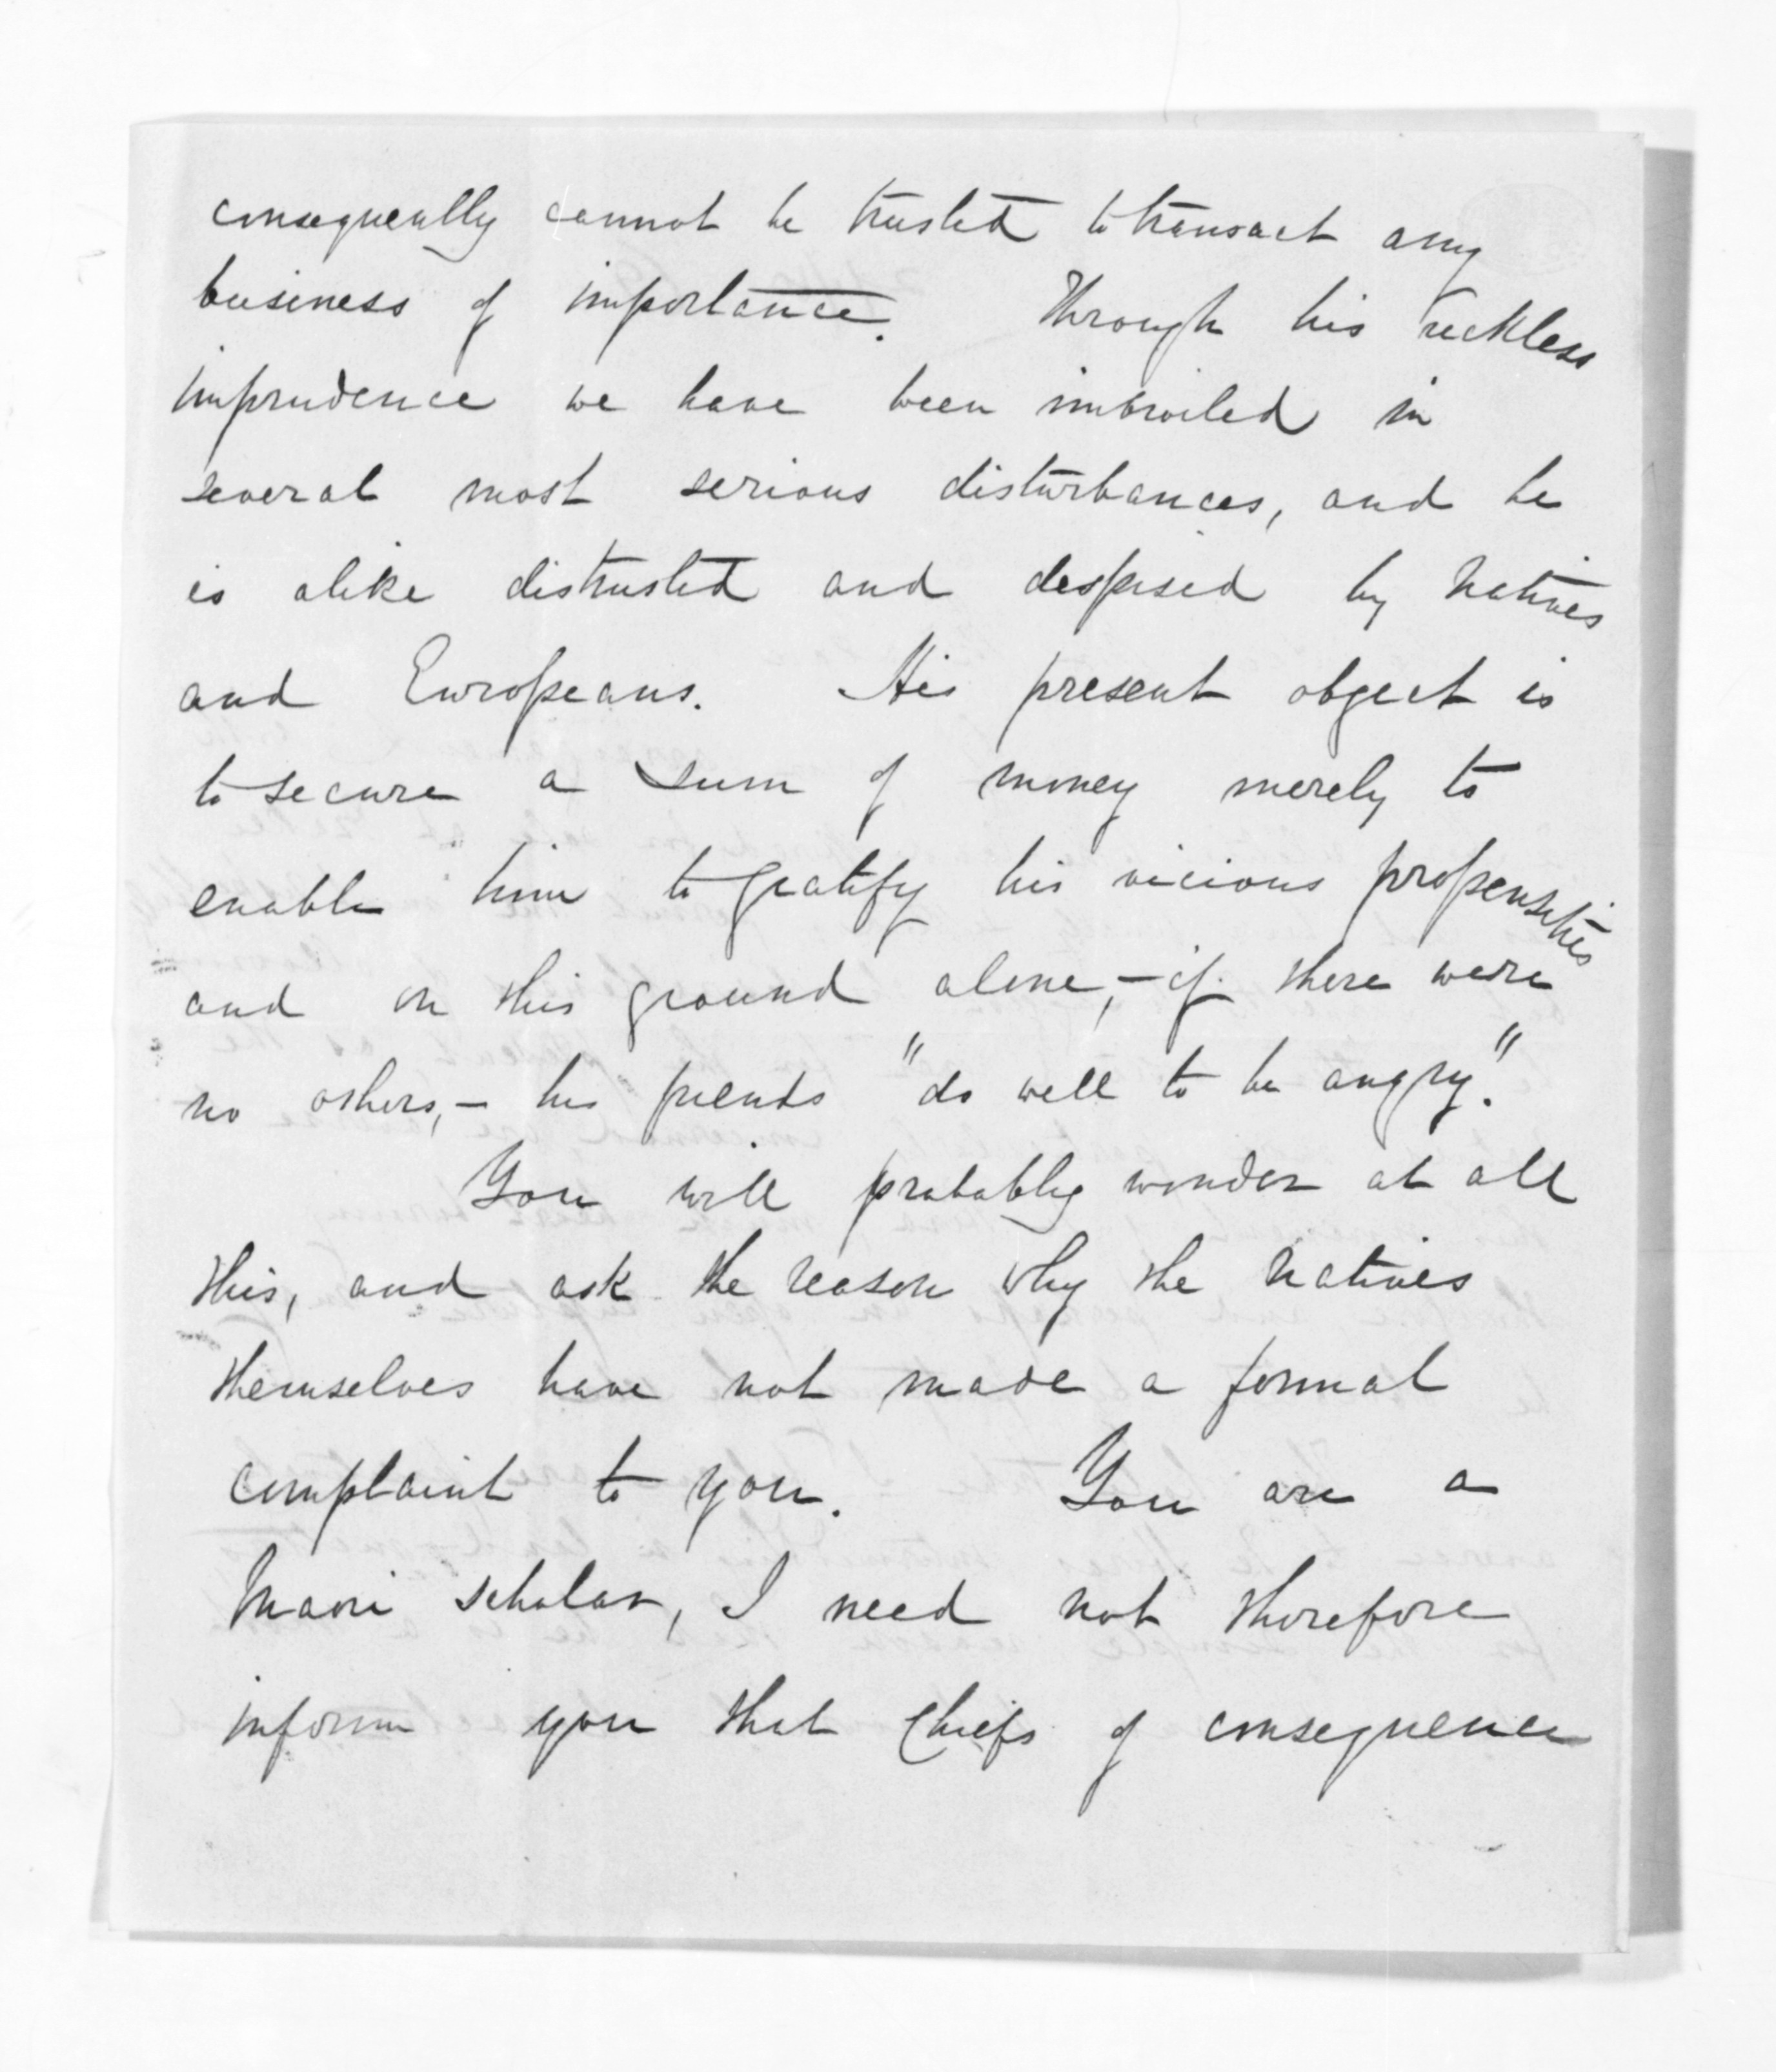 consequently cannot be trusted to transact any
business of importance. Through his reckless
imprudence we have been imbroiled in
several most serious disturbances, and he
is alike distrusted and despised by Natives
and Europeans. His present object is
to secure a sum of money merely to
enable him to gratify his vicious propensities
and on this ground alone, - if there were
no others, - his friends "do well to be angry".
You will probably wonder at all
this, and ask the reason why the Natives
themselves have not made a formal
complaint to you. You are a
Maori scholar, I need not therefore
inform you that Chiefs of consequence